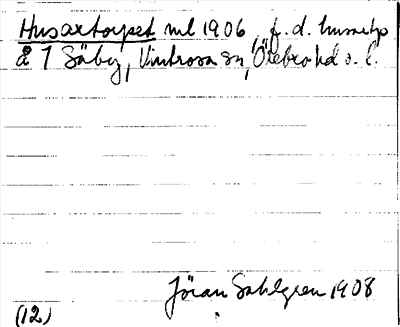 Husartorpet ml 1906, f.d. husartp
å 1 Säby, Vintrosa sn, Örebro hd o. l.
Jöran Sahlgren 1908
(12)